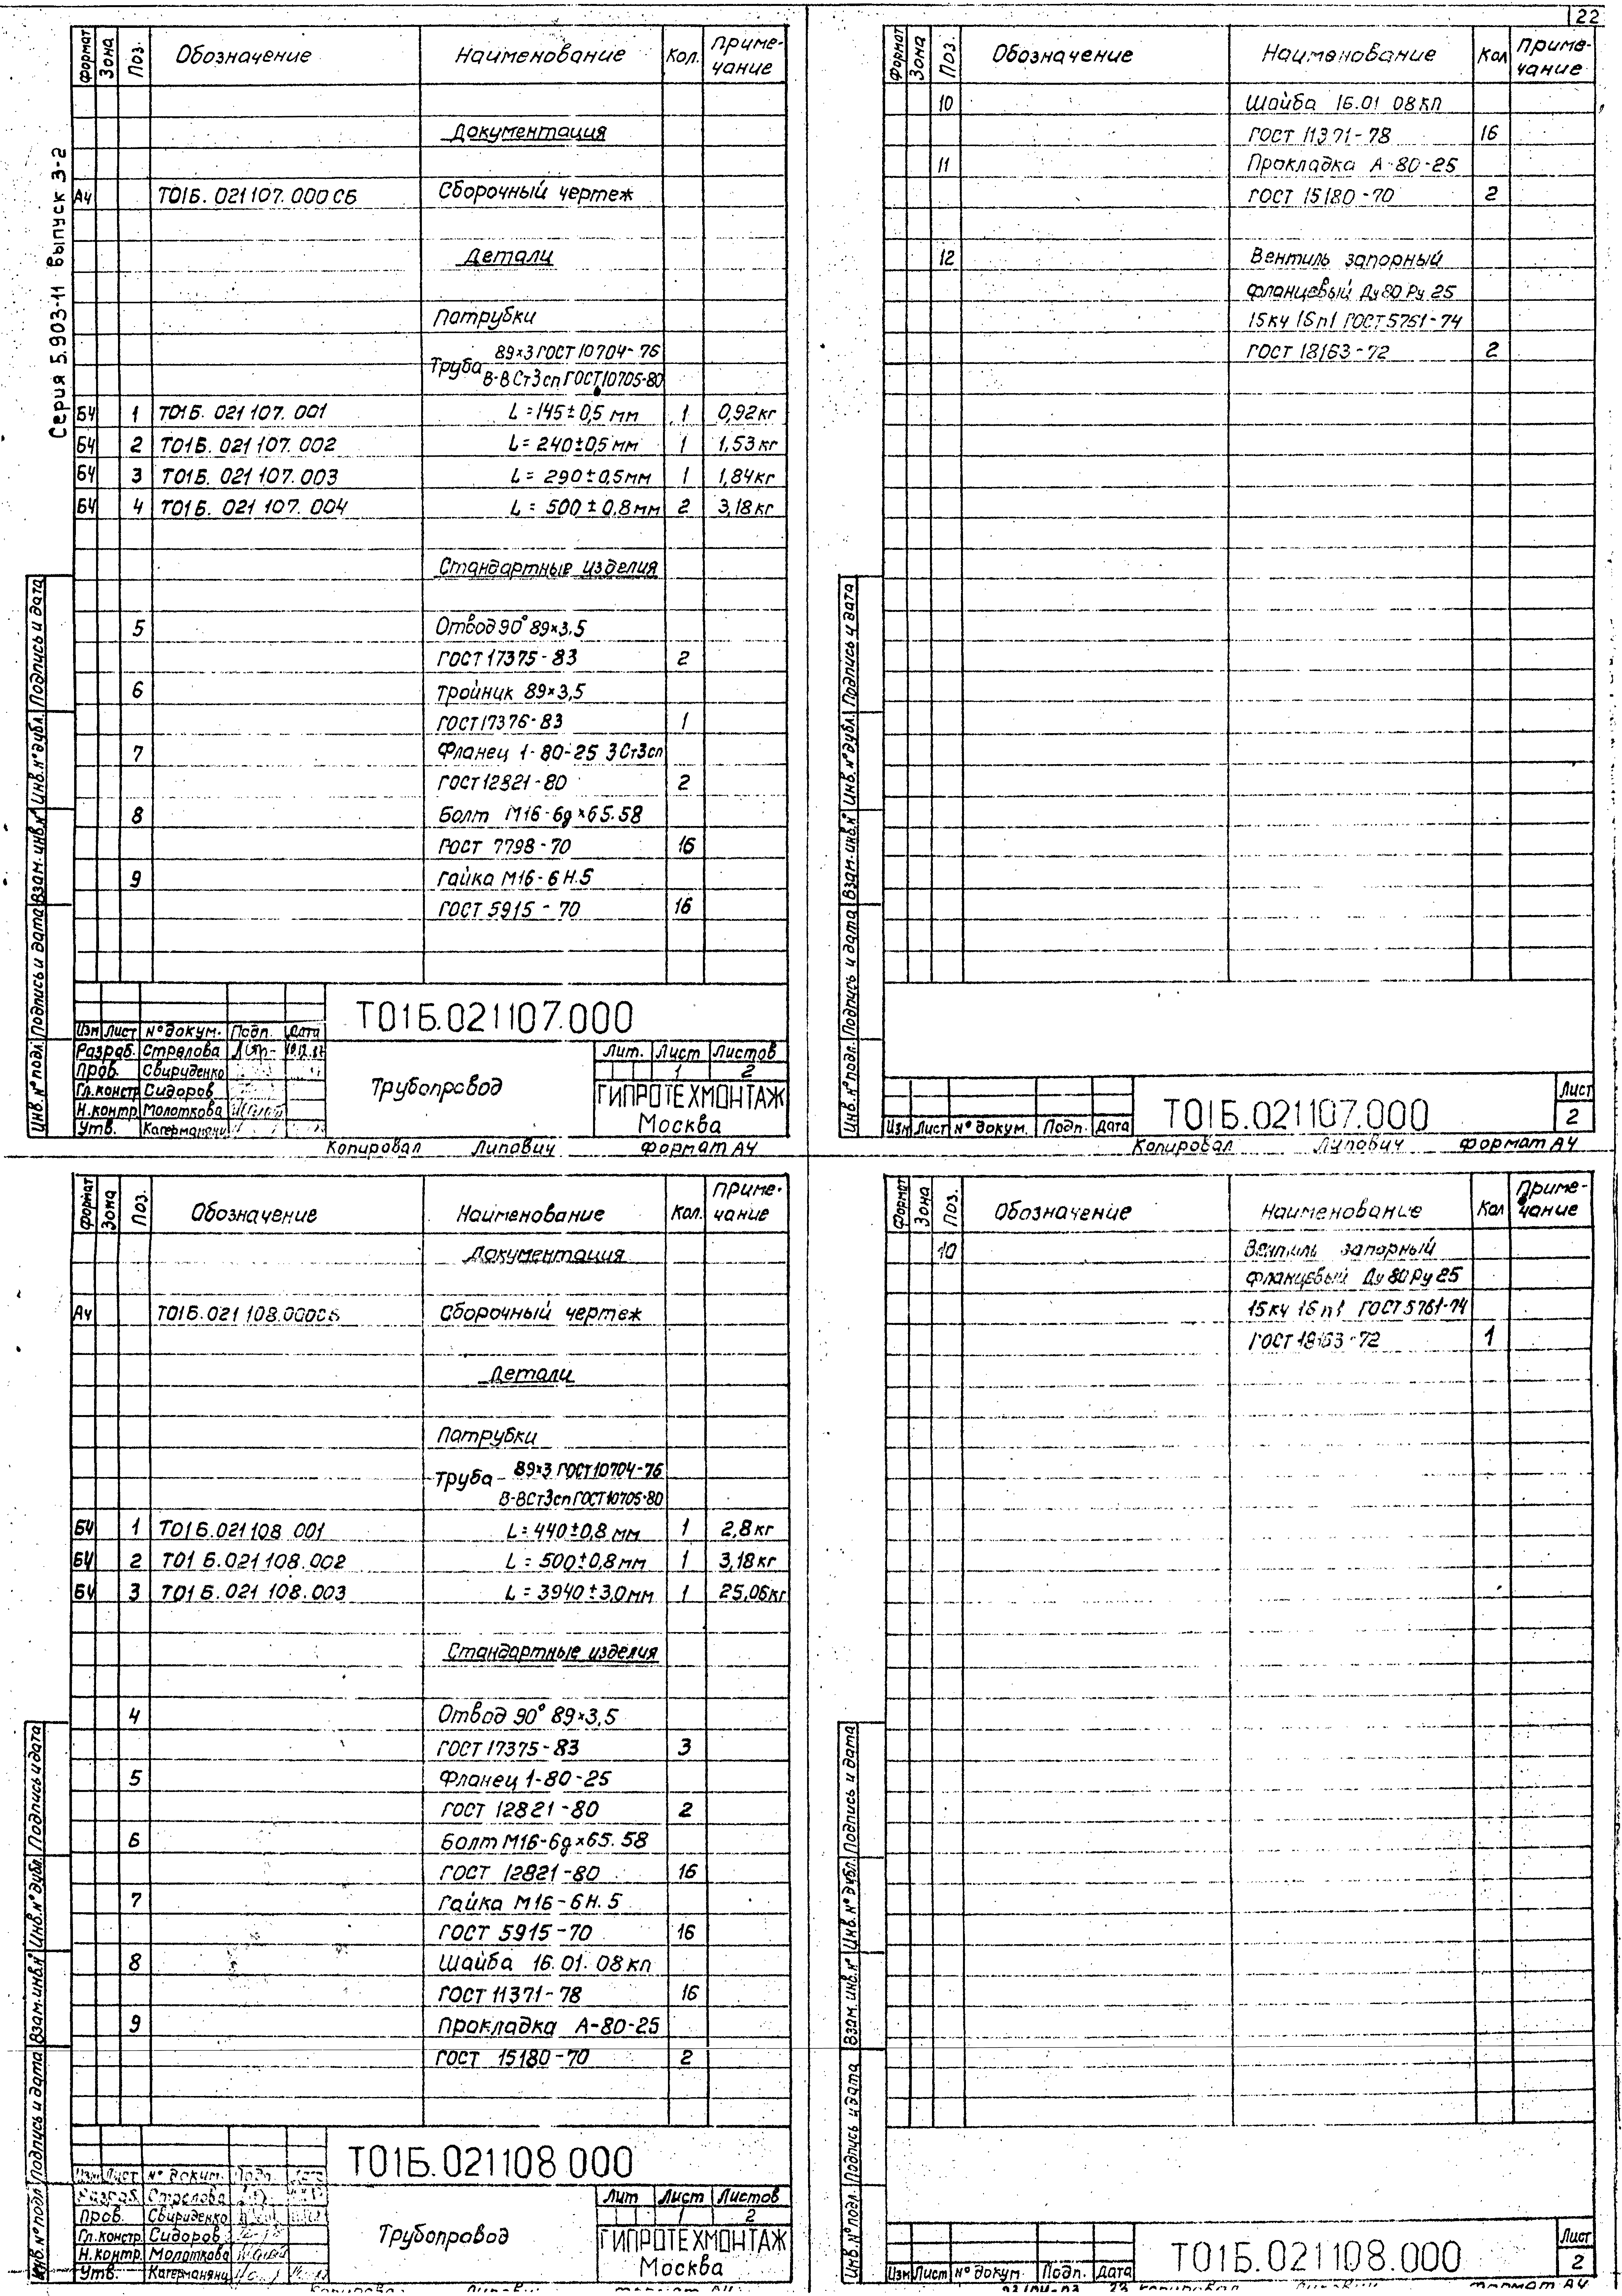 22
Серия 5.903-11 выпуск 3-2
Формат Зона Поз. Обозначение Наименование Кол. Приме-чание
Документация
А4 Т01Б.021107.000СБ Сборочный чертеж
Детали
Патрубки
Труба 89×3 ГОСТ 10704-76
В-В Ст3сп ГОСТ 10705-80
БЧ 1 Т01Б.021107.001 L=145±0,5 мм 1 0,92кг
БЧ 2 Т01Б.021107.002 L=240±0,5 мм 1 1,53кг
БЧ 3 Т01Б.021107.003 L=290±0,5мм 1 1,84кг
БЧ 4 Т01Б.021107.004 L=500±0,8мм 2 3,18кг
Стандартные изделия
5 Отвод 90° 89×3,5
ГОСТ 17375-83 2
6 Тройник 89×3,5
ГОСТ 17376-83 1
7 Фланец 1-80-25 3Ст3сп
ГОСТ 12821-80 2
8 Болт М16-6g×65.58
ГОСТ 7798-70 16
9 Гайка М16-6Н.5
ГОСТ 5915-70 16
Инв.№подл. Подпись и дата Взам.инв.№ Инв.№дубл. Подпись и дата
Т01Б.021107.000
Изм Лист №докум. Подп. Дата
Разраб. Стрелова
Пров. Свириденко
Гл.констр Сидоров
Н.контр. Молоткова
Утв. Кагерманянц
Трубопровод
Лит. Лист Листов
1 2
ГИПРОТЕХМОНТАЖ
Москва
Копировал Липович Формат А4
Формат Зона Поз. Обозначение Наименование Кол Приме-чание
10 Шайба 16.01 08кп
ГОСТ 11371-78 16
11 Прокладка А-80-25
ГОСТ 15180-70 2
12 Вентиль запорный
фланцевый Ду80 Ру25
15кч 16п1 ГОСТ 5761-74
ГОСТ 18163-72 2
Инв.№подл. Подпись и дата Взам.инв.№ Инв.№дубл. Подпись и дата
Изм Лист №докум. Подп. Дата
Т01Б.021107.000
Лист
2
Копировал Липович Формат А4
Формат Зона Поз. Обозначение Наименование Кол. Приме-чание
Документация
А4 Т01Б.021108.000СБ Сборочный чертеж
Детали
Патрубки
Труба 89×3 ГОСТ 10704-76
В-В Ст3сп ГОСТ 10705-80
БЧ 1 Т01Б.021108 001 L=440±0,8 мм 1 2,8кг
БЧ 2 Т01Б.021108.002 L=500±0,8мм 1 3,18кг
БЧ 3 Т01Б.021108.003 L=3940±3,0мм 1 25,06кг
Стандартные изделия
4 Отвод 90° 89×3,5
ГОСТ 17375-83 3
5 Фланец 1-80-25
ГОСТ 12821-80 2
6 Болт М16-6g×65.58
ГОСТ 12821-80 16
7 Гайка М16-6Н.5
ГОСТ 5915-70 16
8 Шайба 16.01.08кп
ГОСТ 11371-78 16
9 Прокладка А-80-25
ГОСТ 15180-70 2
Инв.№подл Подпись и дата Взам.инв.№ Инв.№дубл. Подпись и дата
Т01Б.021108.000
Изм Лист №докум. Подп. Дата
Разраб. Стрелова
Пров. Свириденко
Гл.констр. Сидоров
Н.контр. Молоткова
Утв. Кагерманянц
Трубопровод
Лит Лист Листов
1 2
ГИПРОТЕХМОНТАЖ
Москва
Копировал Липович Формат А4
Формат Зона Поз. Обозначение Наименование Кол Приме-чание
10 Вентиль запорный
фланцевый Ду80 Ру25
15кч 16п1 ГОСТ 5761-74
ГОСТ 18163-72 1
Инв.№подл. Подпись и дата Взам.инв.№ Инв.№дубл. Подпись и дата
Изм Лист №докум. Подп. Дата
Т01Б.021108.000
Лист
2
23 Копировал Липович Формат А4